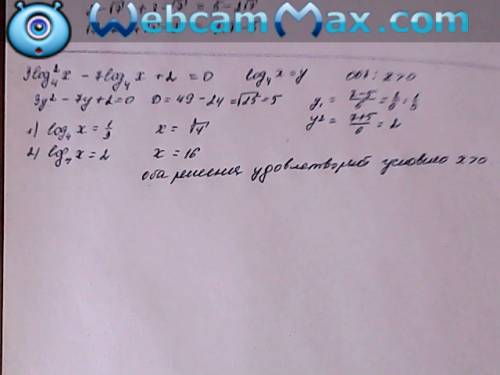 WebcamMax.com
3log₄²x - 7log₄x + 2 = 0 log₄x = y ОДЗ: x>0
3y² - 7y + 2 = 0 D = 49 - 24 = √25 = 5 y₁ = (7-5)/6 = 2/6 = 1/3
y² = (7+5)/6 = 2
1) log₄x = 1/3 x = ∛4
2) log₄x = 2 x = 16
оба решения удовлетворяют условию x>0